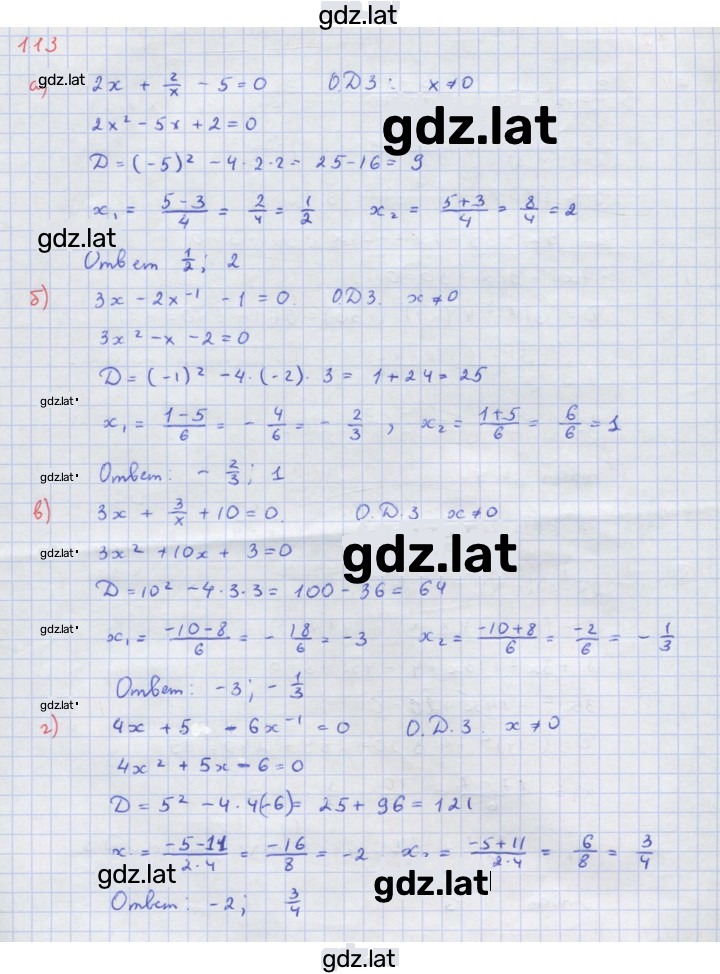 gdz.lat
113
а) gdz.lat 2x + 2/x - 5 = 0 О.Д.З: x ≠ 0
2x² - 5x + 2 = 0 gdz.lat
D = (-5)² - 4·2·2 = 25 - 16 = 9
x₁ = (5-3)/4 = 2/4 = 1/2 x₂ = (5+3)/4 = 8/4 = 2
gdz.lat
Ответ 1/2; 2
б) 3x - 2x⁻¹ - 1 = 0. О.Д.З. x ≠ 0
3x² - x - 2 = 0
D = (-1)² - 4·(-2)·3 = 1 + 24 = 25
gdz.lat
x₁ = (1-5)/6 = - 4/6 = - 2/3, x₂ = (1+5)/6 = 6/6 = 1
gdz.lat Ответ: - 2/3; 1
в) 3x + 3/x + 10 = 0. О.Д.З x ≠ 0
gdz.lat 3x² + 10x + 3 = 0 gdz.lat
D = 10² - 4·3·3 = 100 - 36 = 64
gdz.lat x₁ = (-10-8)/6 = - 18/6 = -3 x₂ = (-10+8)/6 = -2/6 = - 1/3
Ответ: -3; - 1/3
gdz.lat
г) 4x + 5 - 6x⁻¹ = 0 О.Д.З. x ≠ 0
4x² + 5x - 6 = 0
D = 5² - 4·4(-6) = 25 + 96 = 121
x₁ = (-5-11)/(2·4) = -16/8 = -2 x₂ = (-5+11)/(2·4) = 6/8 = 3/4
gdz.lat gdz.lat
Ответ: -2; 3/4
gdz.lat